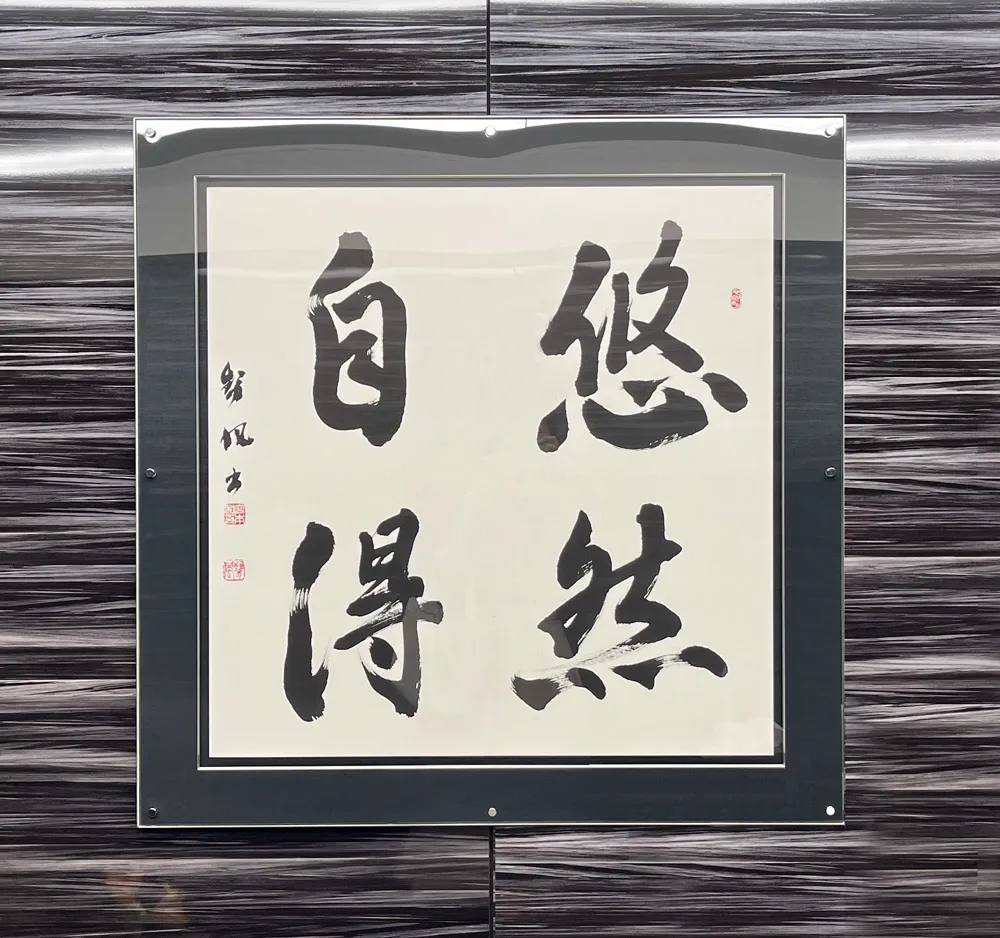 悠然
自得